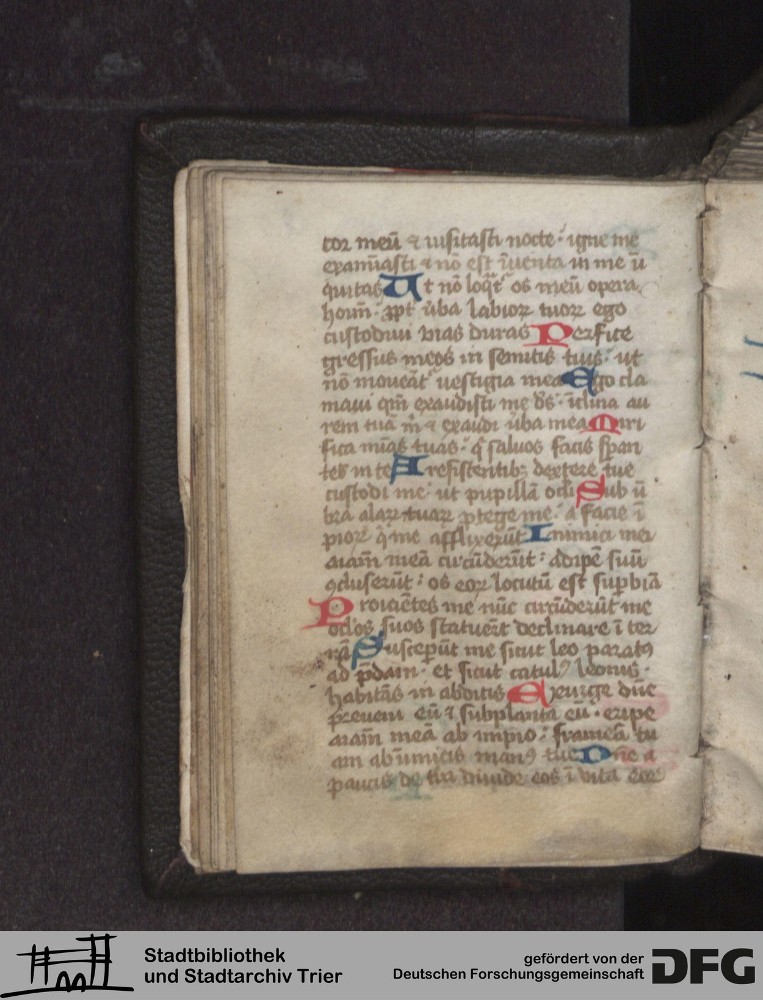 cor meū ⁊ uisitasti nocte · igne me
examīasti ⁊ nō est īuenta in me ī
quitas Ut nō loqͣt᷑ os meū opera
homī · ꝓpt᷑ ūba labioꝝ tuoꝝ ego
custodiui uias duras Perfice
gressus meos in semitis tuis · ut
nō moueāt᷑ uestigia mea Ego cla
maui qm̄ exaudisti me ds̄ · īclina au
rem tuā m̄ ⁊ exaudi ūba mea Miri
fica mīas tuas · q̄ saluos facis speran
tes in te A resistentibꝫ dextere tue
custodi me · ut pupillā ocl̄i Sub ū
bra alaꝝ tuaꝝ ꝓtege me · a facie ī
pioꝝ q̄ me afflixerūt Inimici mei
aiam̄ meā circūderūt · adipē suū
ꝯcluserūt · os eoꝝ locutū est suꝑbiā
Proiciētes me nūc circūderūt me
ocl̄os suos statuerūt declinare ī ter
rā Susceperūt me sicut leo paratꝰ
ad p̄dam · et sicut catulꝰ leonis ·
habitās in abditis Exurge dn̄e
p̄ueni eū ⁊ subplanta eū · eripe
aiam̄ meā ab impio · frameā tu
am ab īimicis manꝰ tue Dn̄e a
paucis de t̄ra diuide eos ī uita eoꝝ
Stadtbibliothek
und Stadtarchiv Trier
gefördert von der
Deutschen Forschungsgemeinschaft
DFG